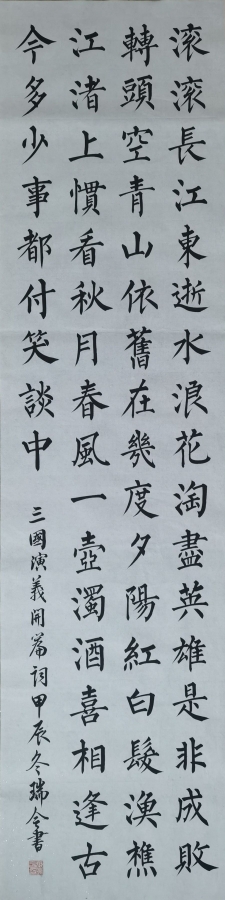 滚滚長江東逝水浪花淘盡英雄是非成敗
轉頭空青山依舊在幾度夕陽紅白髮漁樵
江渚上慣看秋月春風一壺濁酒喜相逢古
今多少事都付笑談中
三國演義開篇詞甲辰冬瑞令書